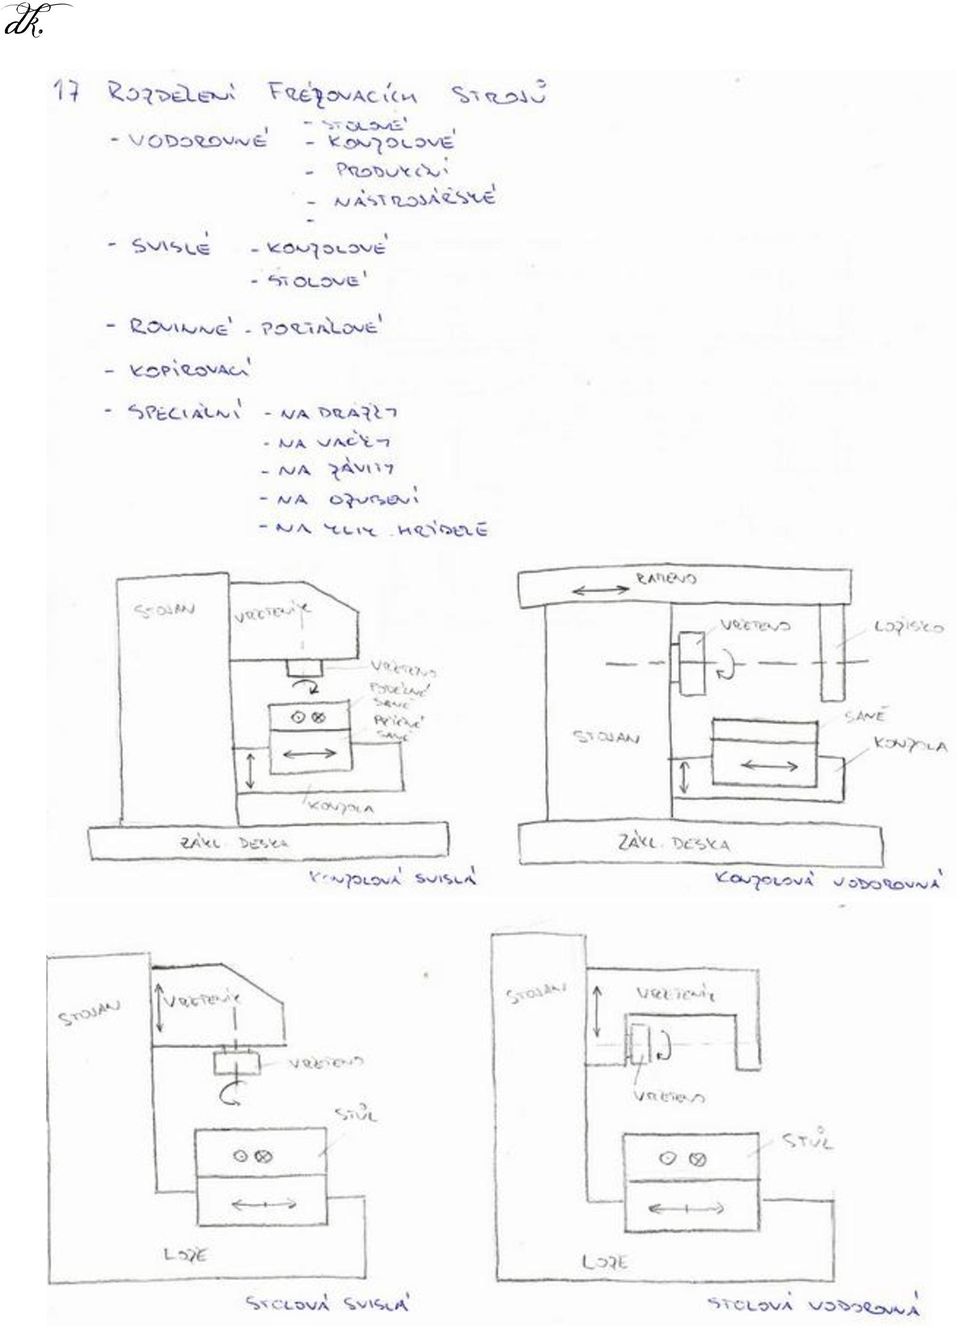 dk.
17 ROZDĚLENÍ FRÉZOVACÍCH STROJŮ
- STOLOVÉ
- VODOROVNÉ - KONZOLOVÉ
- PRODUKČNÍ
- NÁSTROJAŘSKÉ
-
- SVISLÉ - KONZOLOVÉ
- STOLOVÉ
- ROVINNÉ - PORTÁLOVÉ
- KOPÍROVACÍ
- SPECIÁLNÍ - NA DRÁŽKY
- NA VAČKY
- NA ZÁVITY
- NA OZUBENÍ
- NA KLIK. HŘÍDELE
STOJAN
VŘETENÍK
VŘETENO
PODÉLNÉ
SANĚ
PŘÍČNÉ
SANĚ
KONZOLA
ZÁKL. DESKA
KONZOLOVÁ SVISLÁ
RAMENO
VŘETENO
LOŽISKO
STOJAN
SANĚ
KONZOLA
ZÁKL. DESKA
KONZOLOVÁ VODOROVNÁ
STOJAN
VŘETENÍK
VŘETENO
STŮL
LOŽE
STOLOVÁ SVISLÁ
STOJAN
VŘETENÍK
VŘETENO
STŮL
LOŽE
STOLOVÁ VODOROVNÁ